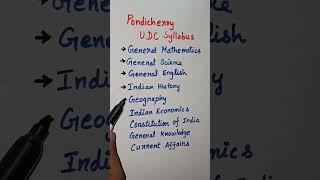 Pondicherry
U.DC Syllabus
→ General Mathematics
→ General Science
→ General English
→ Indian History
Geography
Indian Economics
Constitution of India
General Knowledge
Current Affairs